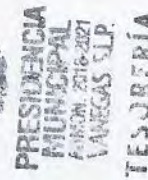 PRESIDENCIA
MUNICIPAL
2018-2021
VANEGAS S.L.P.
TESORERÍA